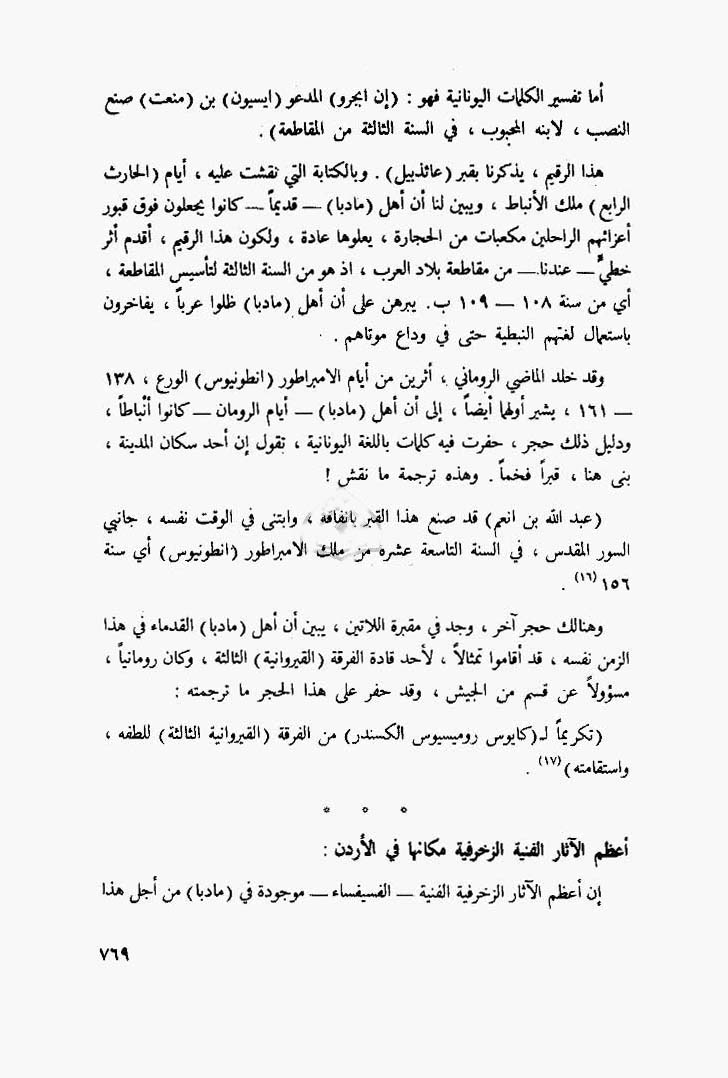 أما تفسير الكلمات اليونانية فهو : (إن ابجرو) المدعو (ايسيون) بن (منعت) صنع
النصب ، لابنه المحبوب ، في السنة الثالثة من المقاطعة) .
هذا الرقيم ، يذكرنا بقبر (عائذبيل) . وبالكتابة التي نقشت عليه ، أيام (الحارث
الرابع) ملك الأنباط ، ويبين لنا أن أهل (مادبا) — قديماً — كانوا يجعلون فوق قبور
أعزائهم الراحلين مكعبات من الحجارة ، يعلوها عادة ، ولكون هذا الرقيم ، أقدم أثر
خطيّ — عندنا — من مقاطعة بلاد العرب ، اذ هو من السنة الثالثة لتأسيس المقاطعة ،
أي من سنة ١٠٨ — ١٠٩ ب. يبرهن على أن أهل (مادبا) ظلوا عرباً ، يفاخرون
باستعمال لغتهم النبطية حتى في وداع موتاهم .
وقد خلد الماضي الروماني ، أثرين من أيام الامبراطور (انطونيوس) الورع ، ١٣٨
— ١٦١ ، يشير أولهما أيضاً ، إلى أن أهل (مادبا) — أيام الرومان — كانوا أنْباطاً ،
ودليل ذلك حجر ، حفرت فيه كلمات باللغة اليونانية ، تقول إن أحد سكان المدينة ،
بنى هنا ، قبراً فخماً . وهذه ترجمة ما نقش !
(عبد الله بن انعم) قد صنع هذا القبر بانفاقه ، وابتنى في الوقت نفسه ، جانبي
السور المقدس ، في السنة التاسعة عشره من ملك الامبراطور (انطونيوس) أي سنة
١٥٦ (١٦) .
وهنالك حجر آخر ، وجد في مقبرة اللاتين ، يبين أن أهل (مادبا) القدماء في هذا
الزمن نفسه ، قد أقاموا تمثالاً ، لأحد قادة الفرقة (القيروانية) الثالثة ، وكان رومانياً ،
مسؤولاً عن قسم من الجيش ، وقد حفر على هذا الحجر ما ترجمته :
(تكريماً لـ(كايوس روميسيوس الكسندر) من الفرقة (القيروانية الثالثة) للطفه ،
واستقامته) (١٧) .
* * *
أعظم الآثار الفنية الزخرفية مكانها في الأردن :
إن أعظم الآثار الزخرفية الفنية — الفسيفساء — موجودة في (مادبا) من أجل هذا
٧٦٩